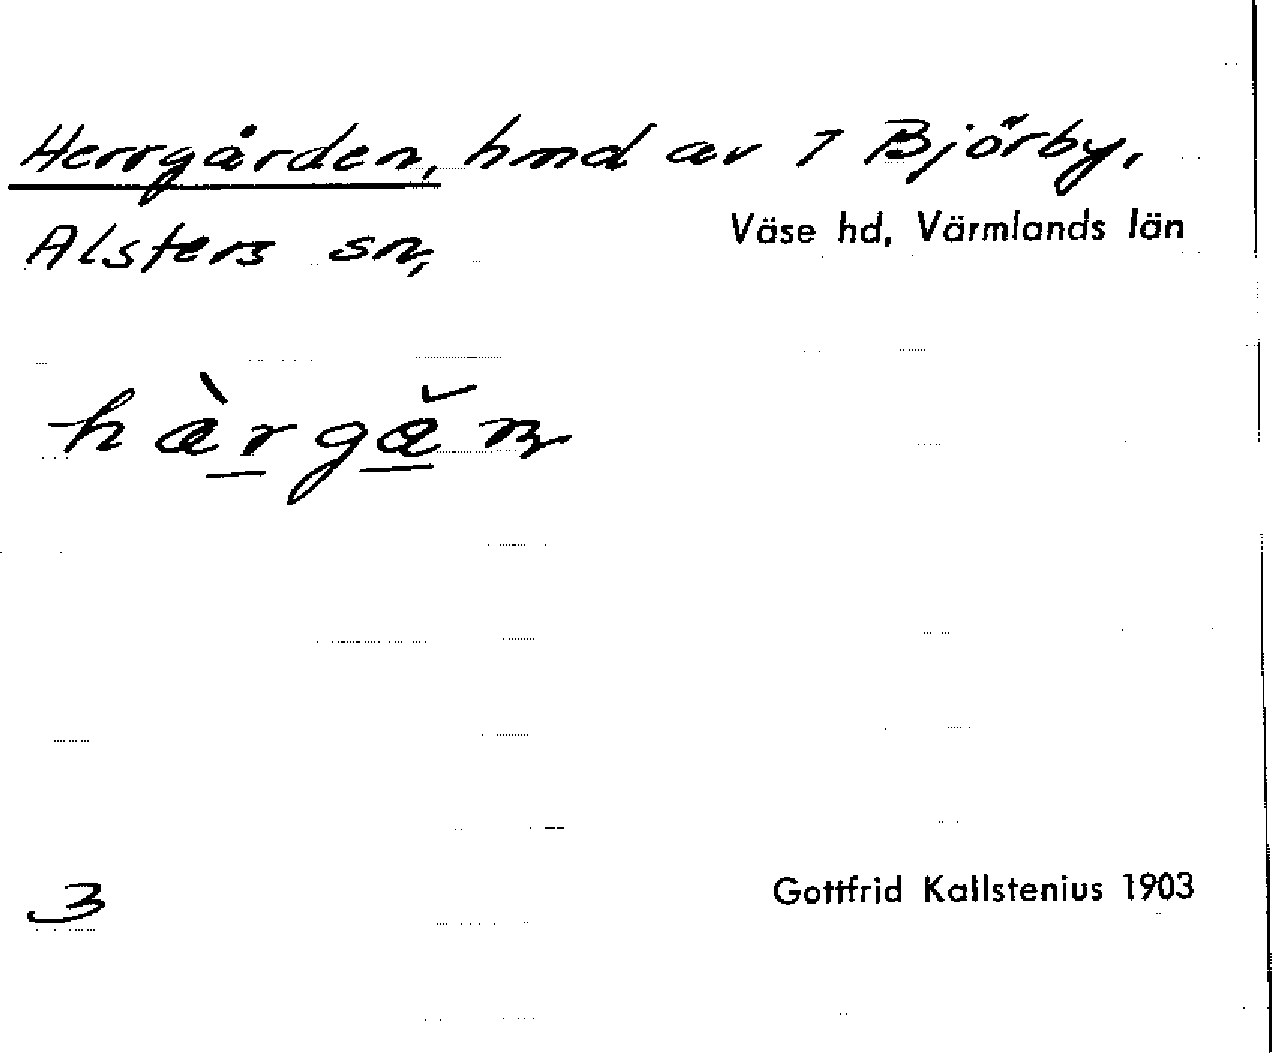 Herrgården, hmd av 7 Björby,
Alsters sn, Väse hd, Värmlands län
hæ̀rgå̆n
3 Gottfrid Kallstenius 1903